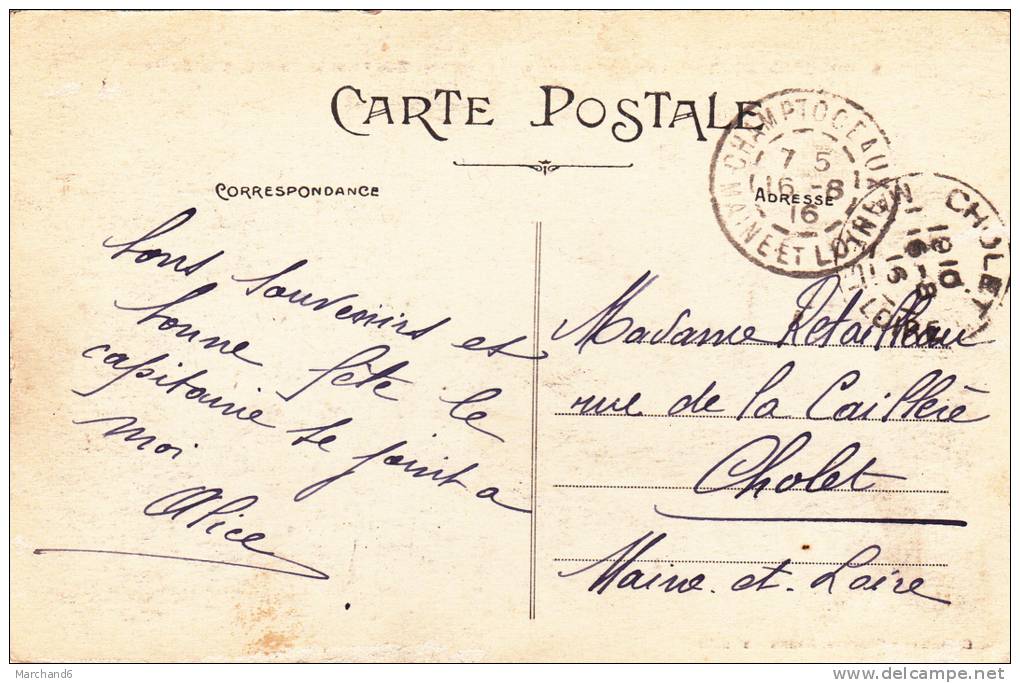 CARTE POSTALE
CORRESPONDANCE
ADRESSE
CHAMPTOCEAUX
7 5
16 -8
16
MAINE ET LOIRE
CHOLET
1810
16-8
16
LOIRE
bons souvenirs et
bonne fête le
capitaine se joint a
moi
Alice
Madame Retailleau
rue de la Caillère
Cholet
Maine. et. Loire
Marchand6
delcampe.net